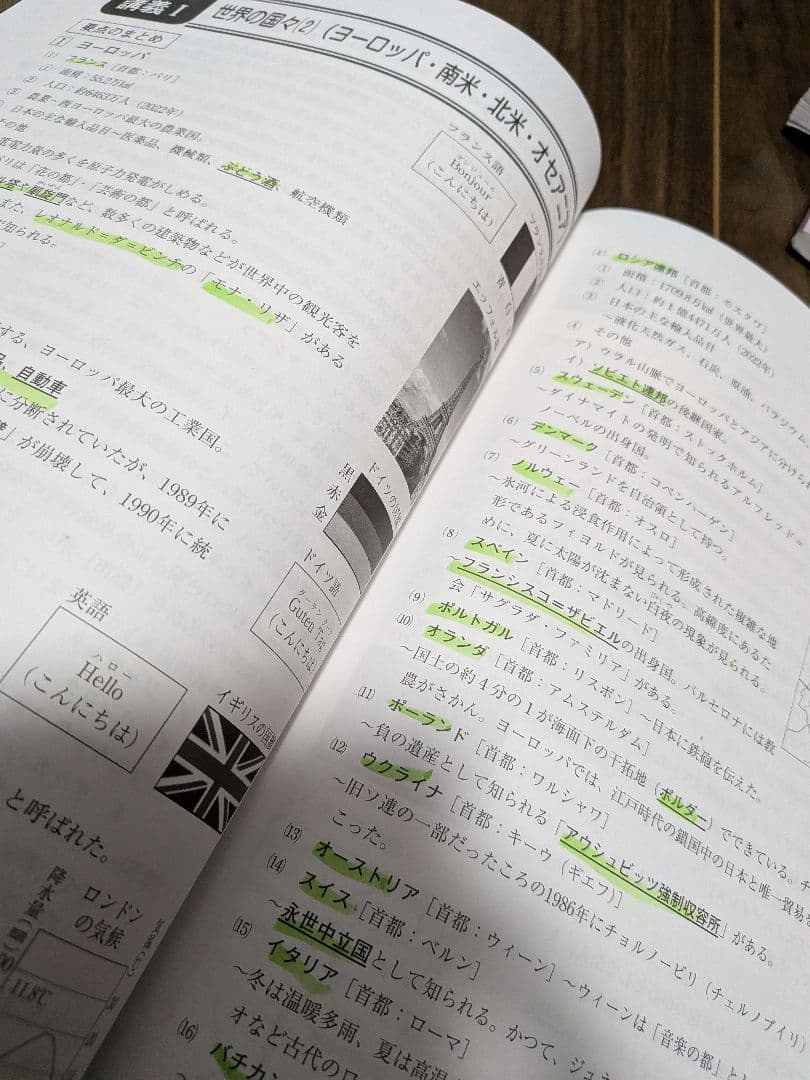 講義Ⅰ 世界の国々⑵(ヨーロッパ・南米・北米・オセアニア
要点のまとめ
1 ヨーロッパ
⑴ フランス[首都:パリ]
① 面積:55.2万㎢
② 人口:約6463万人(2022年)
③ 農業~西ヨーロッパ最大の農業国。
日本の主な輸入品目~医薬品、機械類、ぶどう酒、航空機類
の他
電力量の多くを原子力発電がしめる。
パリは「花の都」・「芸術の都」と呼ばれる。
凱旋門など、数多くの建築物などが世界中の観光客を
また、レオナルド=ダ=ビンチの「モナ・リザ」がある
知られる。
する、ヨーロッパ最大の工業国。
自動車
に分断されていたが、1989年に
」が崩壊して、1990年に統
フランス語
ボンジュール
Bonjour
(こんにちは)
青
ドイツの国旗
黒
赤
金
ドイツ語
グーテンターク
Guten Tag
(こんにちは)
英語
ハロー
Hello
(こんにちは)
イギリスの国旗
と呼ばれた。
ロンドン
の気候
降水量
11.8℃
⑷ ロシア連邦[首都:モスクワ]
① 面積:1709.8万㎢(世界最大)
② 人口:約1億4471万人(2022年)
③ 日本の主な輸入品目
~液化天然ガス、石炭、原油、パラジウム
④ その他
ア)ウラル山脈でヨーロッパとアジアに分けられ
イ)ソビエト連邦の後継国家。
⑸ スウェーデン[首都:ストックホルム]
~ダイナマイトの発明で知られるアルフレッド=
ノーベルの出身国。
⑹ デンマーク[首都:コペンハーゲン]
~グリーンランドを自治領として持つ。
⑺ ノルウェー[首都:オスロ]
~氷河による浸食作用によって形成された複雑な地
形であるフィヨルドが見られる。高緯度にあるた
めに、夏に太陽が沈まない白夜の現象が見られる。
⑻ スペイン[首都:マドリード]
~フランシスコ=ザビエルの出身国。バルセロナには教
会「サグラダ・ファミリア」がある。
⑼ ポルトガル[首都:リスボン]~日本に鉄砲を伝えた。
⑽ オランダ[首都:アムステルダム]
~国土の約4分の1が海面下の干拓地(ポルダー)でできている。チ
農がさかん。ヨーロッパでは、江戸時代の鎖国中の日本と唯一貿易を
⑾ ポーランド[首都:ワルシャワ]
~負の遺産として知られる「アウシュビッツ強制収容所」がある。
⑿ ウクライナ[首都:キーウ(ギエフ)]
~旧ソ連の一部だったころの1986年にチョルノービリ(チェルノブイリ)
こった。
⒀ オーストリア[首都:ウィーン]~ウィーンは「音楽の都」とし
⒁ スイス[首都:ベルン]
~永世中立国として知られる。かつて、ジュネ
⒂ イタリア[首都:ローマ]
~冬は温暖多雨、夏は高温
オなど古代のロ
⒃ バチカン